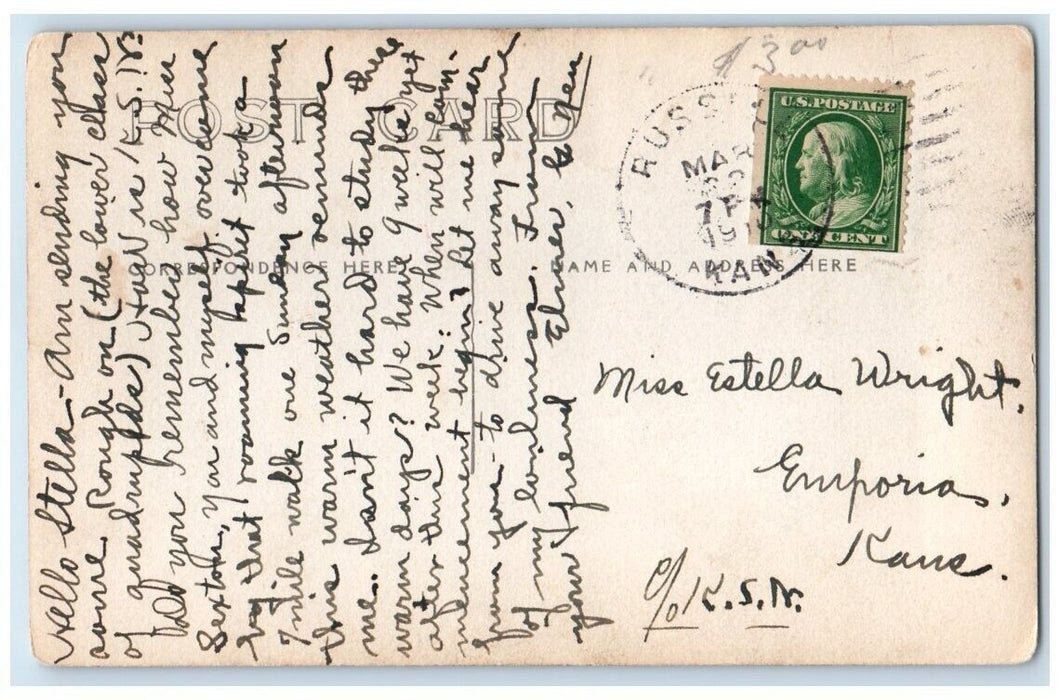 POST CARD
CORRESPONDENCE HERE
NAME AND ADDRESS HERE
$3.00
U.S. POSTAGE
ONE CENT
MAR
7 P
KAN
Hello Stella - Am sending you
one. Rough on (the lower class
of quadrupeds) is K.S.N.
Do you remember how Miss
Sexton, you and myself overcome
by that roaming habit took a
7 mile walk one Sunday afternoon
this warm weather reminds
me. Isn't it hard to study these
warm days? We have 9 weeks yet
after this week: When will Com-
mencement begin? Let me hear
from you - to drive away some
of my loneliness. From
your friend Elmer,
Miss Estella Wright.
Emporia,
Kans.
c/o K.S.N.